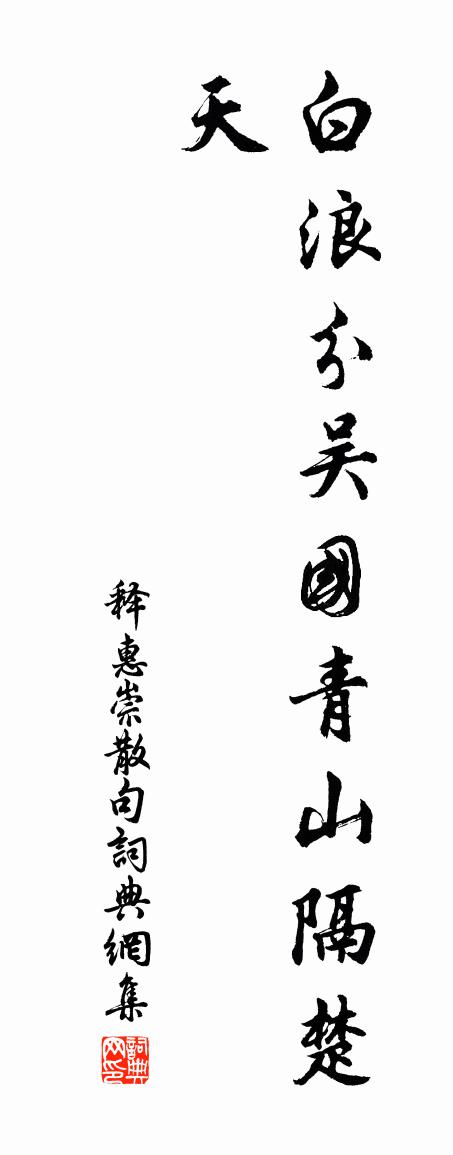 白浪分吴國青山隔楚
天
释惠崇散句詞典網集
詞典网印